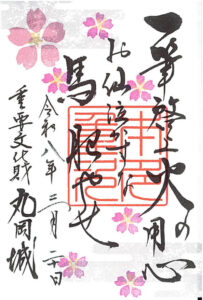 一筆啓上火の用心
お仙泣かすな
馬肥やせ
令和八年三月二十日
重要文化財 丸岡城